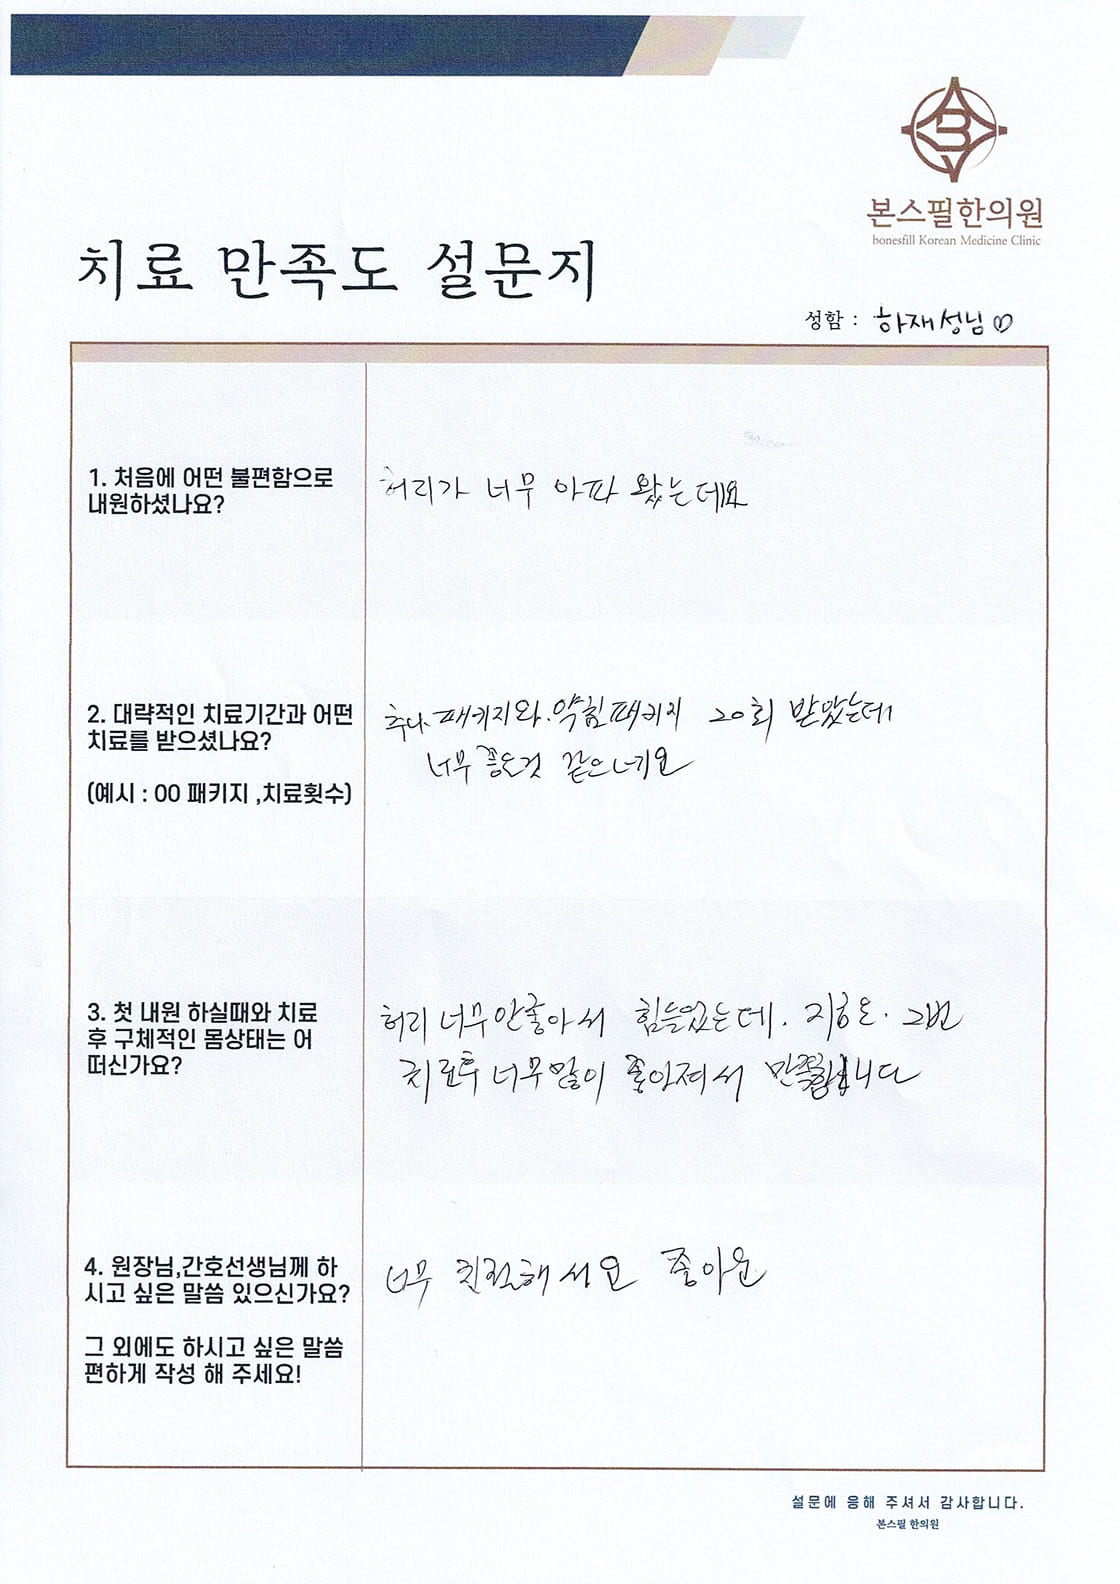 본스필한의원
bonesfill Korean Medicine Clinic
치료 만족도 설문지
성함 : 하재성님♡
1. 처음에 어떤 불편함으로
내원하셨나요?
허리가 너무 아파 왔는데요
2. 대략적인 치료기간과 어떤
치료를 받으셨나요?
(예시 : 00 패키지 ,치료횟수)
추나.패키지와.약침패키지 20회 받았는데
너무 좋은것 같으네요
3. 첫 내원 하실때와 치료
후 구체적인 몸상태는 어
떠신가요?
허리 너무안좋아서 힘들었는데. 20번
치료후 너무많이 좋아져서 만족합니다
4. 원장님,간호선생님께 하
시고 싶은 말씀 있으신가요?
그 외에도 하시고 싶은 말씀
편하게 작성 해 주세요!
너무 친절해서요 좋아요
설문에 응해 주셔서 감사합니다.
본스필 한의원